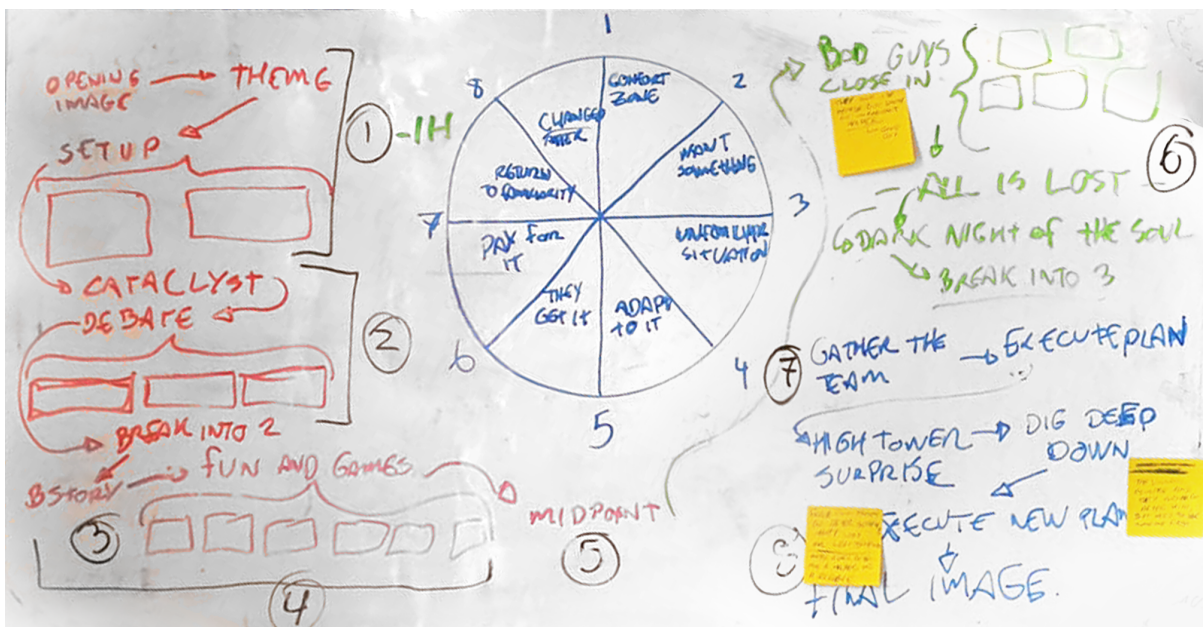 OPENING
IMAGE
THEME
SETUP
1
-1H
CATACLYST
DEBATE
2
BREAK INTO 2
BSTORY
FUN AND GAMES
3
4
MIDPOINT
5
1
2
3
4
5
6
7
8
COMFORT
ZONE
WANT
SOMETHING
UNFAMILIAR
SITUATION
ADAPT
TO IT
THEY
GET IT
PAY FOR
IT
RETURN
TO FAMILIARITY
CHANGED
BAD GUYS
CLOSE IN
6
ALL IS LOST
DARK NIGHT OF THE SOUL
BREAK INTO 3
7
GATHER THE
TEAM
EXECUTE PLAN
HIGH TOWER
SURPRISE
DIG DEEP
DOWN
8
XECUTE NEW PLAN
FINAL IMAGE.